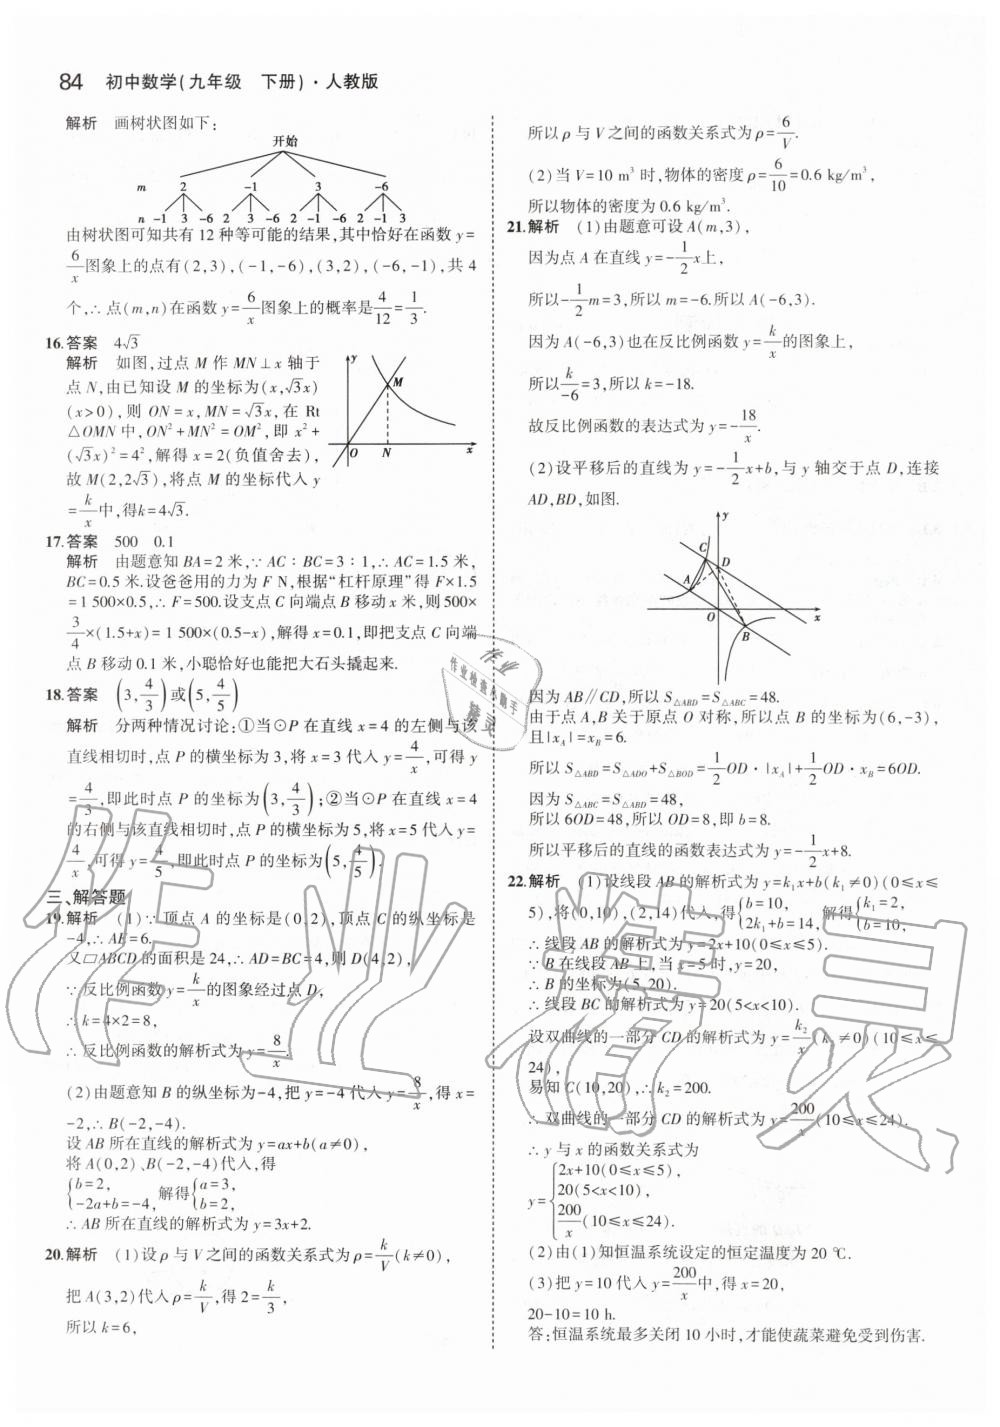 84 初中数学(九年级 下册)·人教版
解析 画树状图如下:
开始
m 2 -1 3 -6
n -1 3 -6 2 3 -6 2 -1 -6 2 -1 3
由树状图可知共有 12 种等可能的结果,其中恰好在函数 y=
6/x 图象上的点有(2,3),(-1,-6),(3,2),(-6,-1),共 4
个,∴点(m,n)在函数 y=6/x 图象上的概率是 4/12=1/3.
16.答案 4√3
解析 如图,过点 M 作 MN⊥x 轴于
点 N,由已知设 M 的坐标为(x,√3x)
(x>0),则 ON=x,MN=√3x,在 Rt
△OMN 中,ON²+MN²=OM²,即 x²+
(√3x)²=4²,解得 x=2(负值舍去),
故 M(2,2√3),将点 M 的坐标代入 y
=k/x 中,得k=4√3.
y
M
O N x
17.答案 500 0.1
解析 由题意知 BA=2 米,∵AC∶BC=3∶1,∴AC=1.5 米,
BC=0.5 米.设爸爸用的力为 F N,根据“杠杆原理”得 F×1.5
=1 500×0.5,∴F=500.设支点 C 向端点 B 移动 x 米,则 500×
3/4×(1.5+x)=1 500×(0.5-x),解得 x=0.1,即把支点 C 向端
点 B 移动 0.1 米,小聪恰好也能把大石头撬起来.
18.答案 (3,4/3)或(5,4/5)
解析 分两种情况讨论:①当⊙P 在直线 x=4 的左侧与该
直线相切时,点 P 的横坐标为 3,将 x=3 代入 y=4/x,可得 y
=4/3,即此时点 P 的坐标为(3,4/3);②当⊙P 在直线 x=4
的右侧与该直线相切时,点 P 的横坐标为 5,将 x=5 代入 y=
4/x,可得 y=4/5,即此时点 P 的坐标为(5,4/5).
三、解答题
19.解析 (1)∵顶点 A 的坐标是(0,2),顶点 C 的纵坐标是
-4,∴AE=6.
又▱ABCD 的面积是 24,∴AD=BC=4,则 D(4,2),
∵反比例函数 y=k/x 的图象经过点 D,
∴k=4×2=8,
∴反比例函数的解析式为 y=8/x.
(2)由题意知 B 的纵坐标为-4,把 y=-4 代入 y=8/x,得 x=
-2,∴B(-2,-4).
设 AB 所在直线的解析式为 y=ax+b(a≠0),
将 A(0,2)、B(-2,-4)代入,得
{b=2, -2a+b=-4, 解得{a=3, b=2,
∴AB 所在直线的解析式为 y=3x+2.
20.解析 (1)设 ρ 与 V 之间的函数关系式为 ρ=k/V(k≠0),
把 A(3,2)代入 ρ=k/V,得 2=k/3,
所以 k=6,
所以 ρ 与 V 之间的函数关系式为 ρ=6/V.
(2)当 V=10 m³ 时,物体的密度 ρ=6/10=0.6 kg/m³,
所以物体的密度为 0.6 kg/m³.
21.解析 (1)由题意可设 A(m,3),
因为点 A 在直线 y=-1/2x 上,
所以-1/2m=3,所以 m=-6.所以 A(-6,3).
因为 A(-6,3)也在反比例函数 y=k/x 的图象上,
所以k/-6=3,所以 k=-18.
故反比例函数的表达式为 y=-18/x.
(2)设平移后的直线为 y=-1/2x+b,与 y 轴交于点 D,连接
AD,BD,如图.
y
C
D
A
O x
B
因为 AB∥CD,所以 S△ABD=S△ABC=48.
由于点 A,B 关于原点 O 对称,所以点 B 的坐标为(6,-3),
且|xA|=xB=6.
所以 S△ABD=S△ADO+S△BOD=1/2OD·|xA|+1/2OD·xB=6OD.
因为 S△ABC=S△ABD=48,
所以 6OD=48,所以 OD=8,即 b=8.
所以平移后的直线的函数表达式为 y=-1/2x+8.
22.解析 (1)设线段 AB 的解析式为 y=k₁x+b(k₁≠0)(0≤x≤
5),将(0,10),(2,14)代入,得{b=10, 2k₁+b=14, 解得{k₁=2, b=10,
∴线段 AB 的解析式为 y=2x+10(0≤x≤5).
∵B 在线段 AB 上,当 x=5 时,y=20,
∴B 的坐标为(5,20).
∴线段 BC 的解析式为 y=20(5<x<10).
设双曲线的一部分 CD 的解析式为 y=k₂/x(k₂≠0)(10≤x≤
24),
易知 C(10,20),∴k₂=200.
∴双曲线的一部分 CD 的解析式为 y=200/x(10≤x≤24).
∴y 与 x 的函数关系式为
y={2x+10(0≤x≤5),
20(5<x<10),
200/x(10≤x≤24).
(2)由(1)知恒温系统设定的恒定温度为 20 ℃.
(3)把 y=10 代入 y=200/x 中,得 x=20,
20-10=10 h.
答:恒温系统最多关闭 10 小时,才能使蔬菜避免受到伤害.
作业精灵
作业
作业检查小助手
精灵